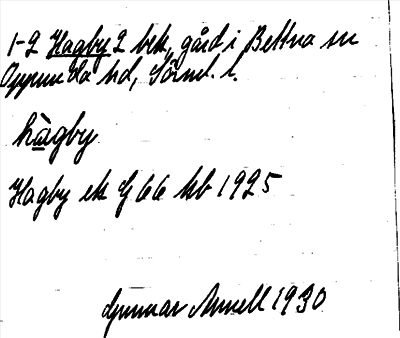 1-2 Hagby 2 bek, gård i Bettna sn
Oppunda hd, Söml. l.
hàgby
Hagby ek G 66 kb 1925
Gunnar Annell 1930